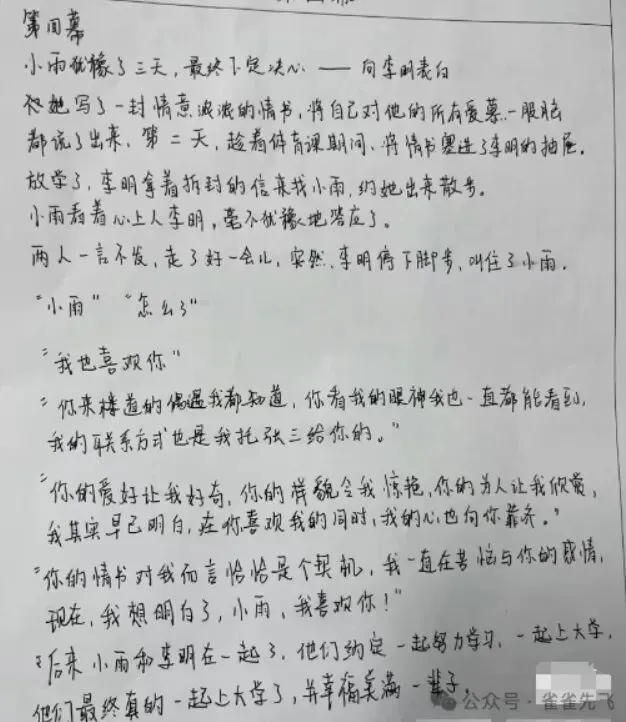 第四幕
小雨犹豫了三天，最终下定决心 —— 向李明表白
她写了一封情意满满的情书，将自己对他的所有爱慕一股脑
都说了出来，第二天，趁着体育课期间，将情书塞进了李明的抽屉。
放学了，李明拿着拆封的信来找小雨，约她出来散步。
小雨看着心上人李明，毫不犹豫地答应了。
两人一言不发，走了好一会儿，突然，李明停下脚步，叫住了小雨，
“小雨” “怎么了”
“我也喜欢你”
“你来楼道的偶遇我都知道，你看我的眼神我也一直都能看到，
我的联系方式也是我托张三给你的。”
“你的爱好让我好奇，你的样貌令我惊艳，你的为人让我欣赏，
我其实早已明白，在你喜欢我的同时，我的心也向你靠齐。”
“你的情书对我而言恰恰是个契机，我一直在苦恼与你的感情，
现在，我想明白了，小雨，我喜欢你！”
后来小雨和李明在一起了，他们约定一起努力学习，一起上大学，
他们最终真的一起上大学了，并幸福美满一辈子，
公众号·雀雀先飞